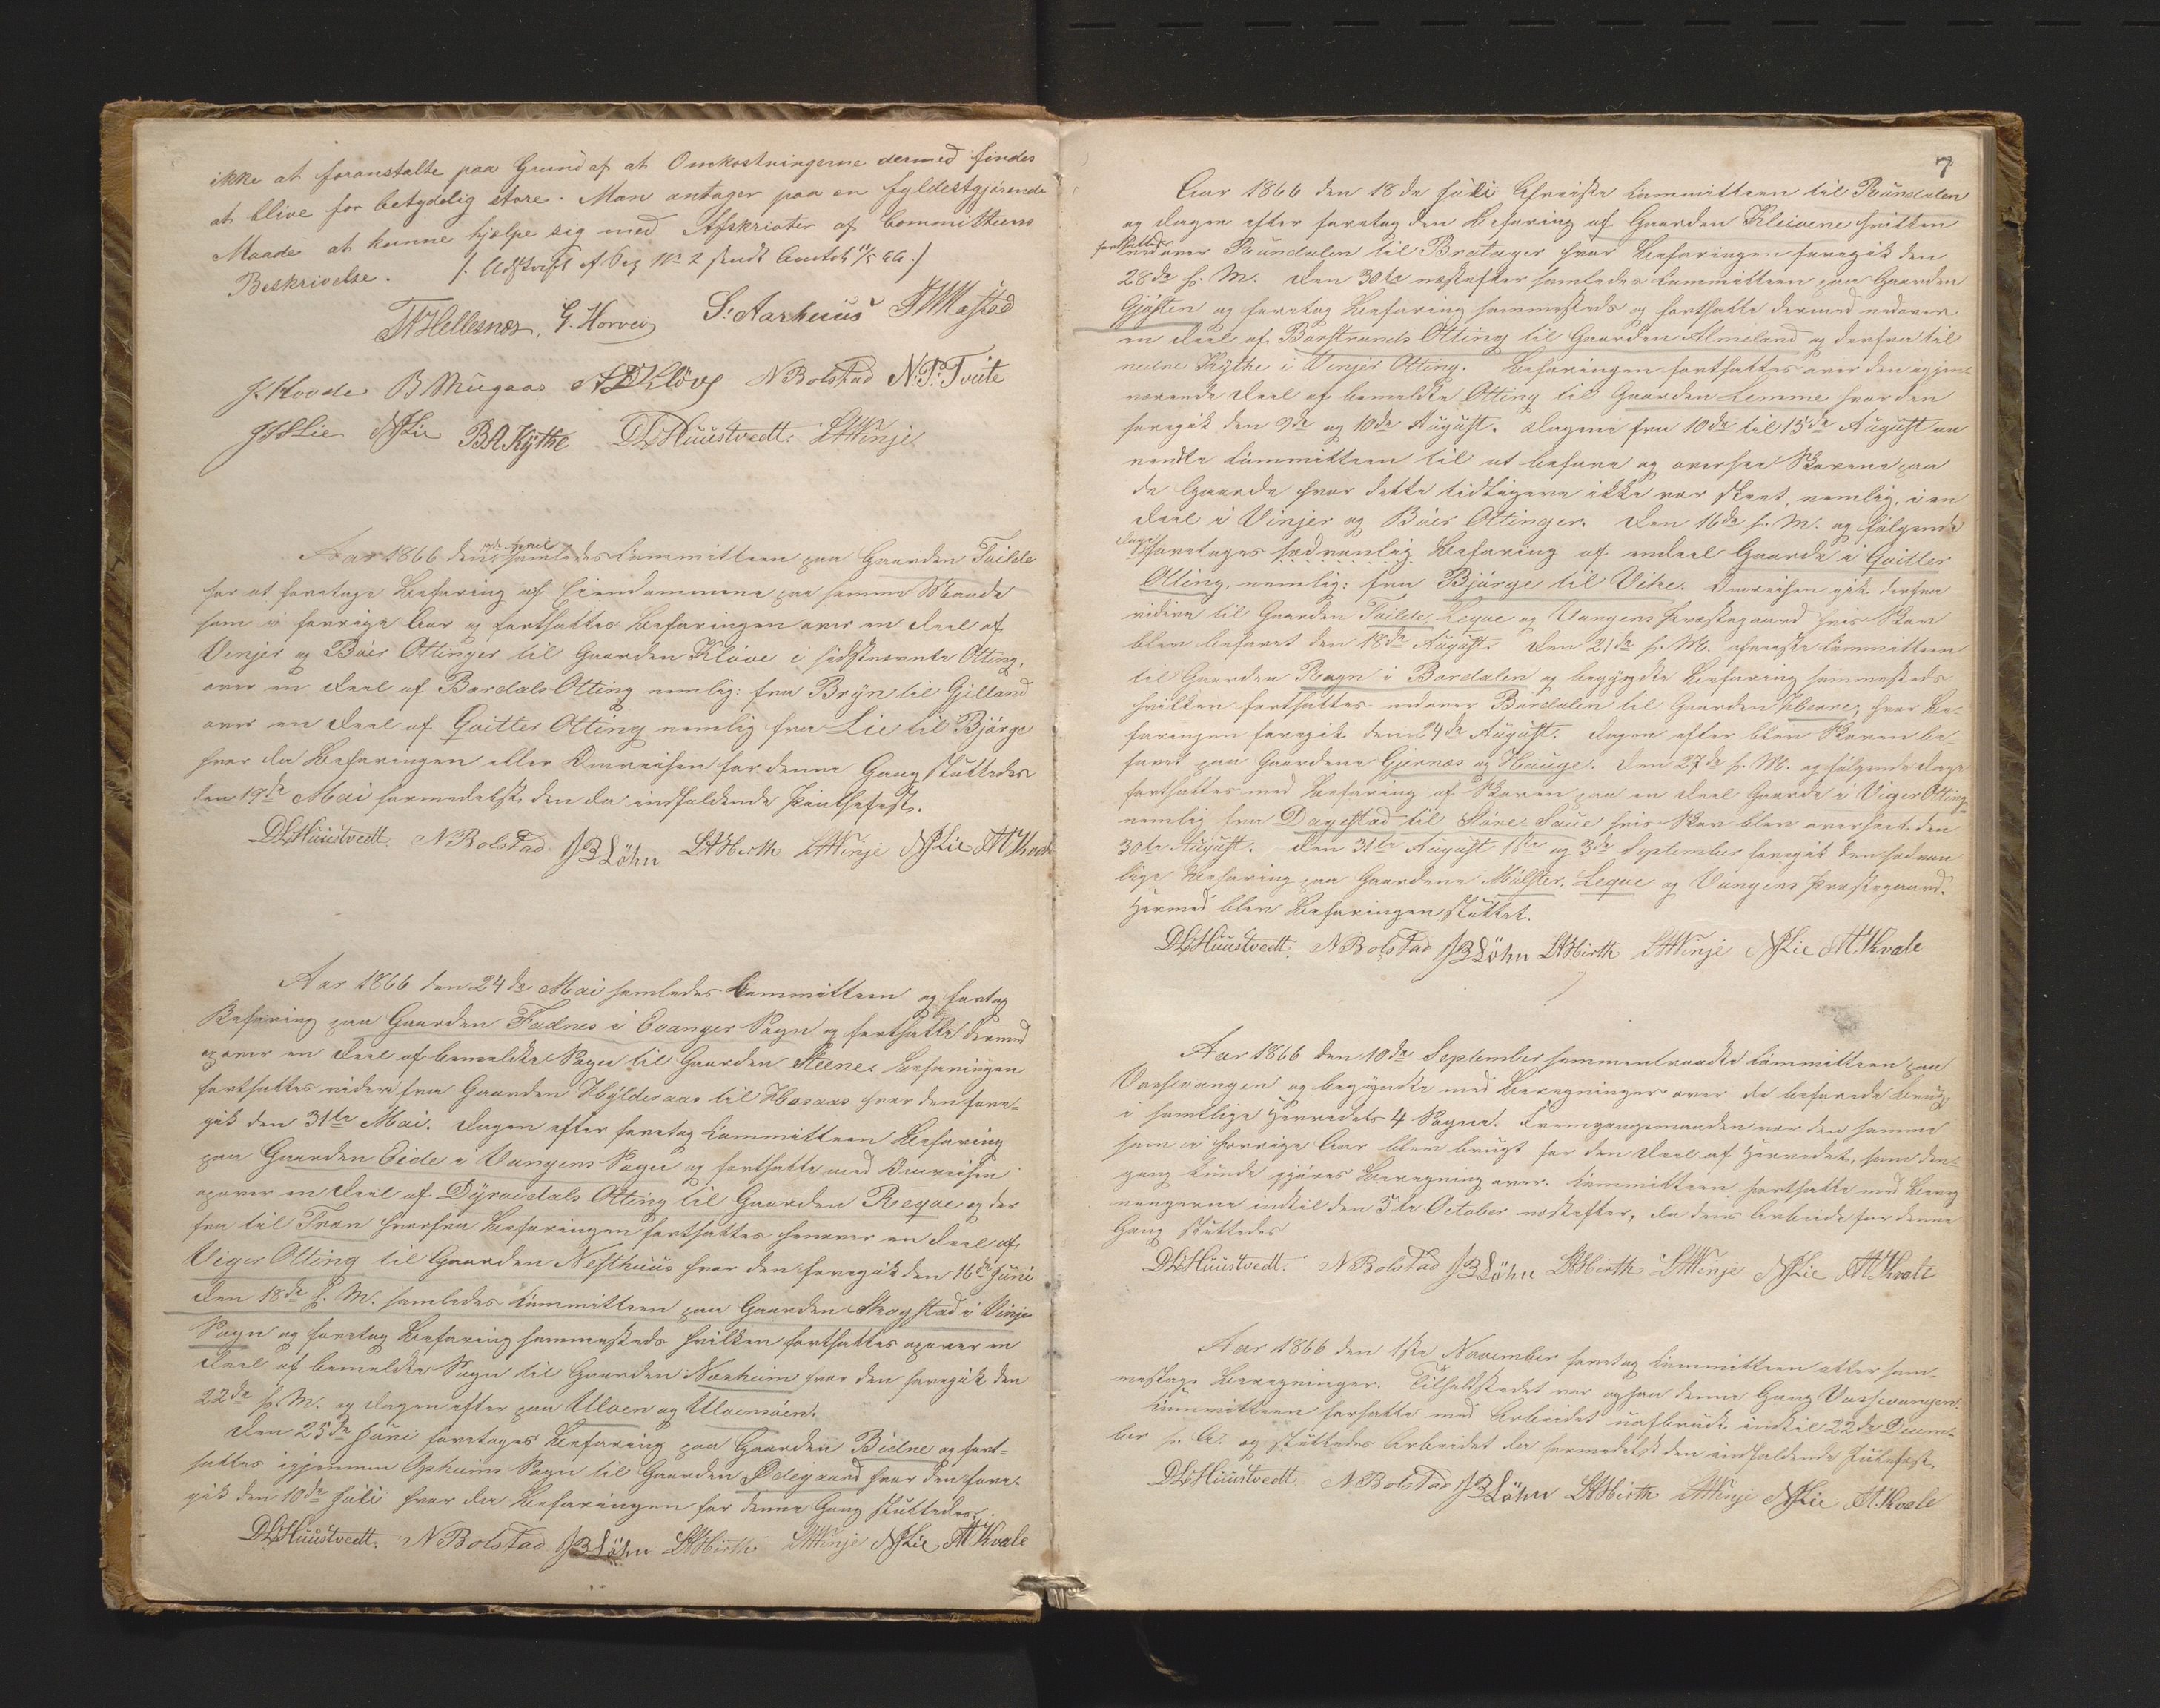 ikke at foranstalte paa Grund af at Omkostningerne dermed findes
at blive for betydelig store. Man antager paa en fyldestgjørende
Maade at kunne hjælpe sig med Afskrivter af Committeens
Beskrivelse. /: Udskrift af Sag No 2 sendt 11/5 66 :/
Hellesnæs, G. Horvei S. Aarhuus
B Mugaas Kløve N Bolstad N. P. Tvite
Lie NLie BAKÿthe DLHuustvedt. LAWinje
Aar 1866 den Aprel samledes Committeen paa Gaarden Tvilde
for at foretage Befaring af Eiendommene paa samme Maade
som i forrige Aar og fortsattes Befaringen over en Deel af
Vinjer og Bøier Ottinger til Gaarden Kløve i sidstnævnte Otting,
over en Deel af Bordals Otting nemlig: fra Brÿn til Gjelland
over en Deel af Qvitler Otting nemlig fra Lie til Bjørge
hvor da Befaringen eller Omreisen for denne Gang sluttedes
den 19de Mai formedelst den da indfaldende Pintsefest.
DLHuustvedt. N Bolstad JBLöhn LAHirth LAWinje NLie AKvale
Aar 1866 den 24de Mai samledes Committeen og foretog
Befaring paa Gaarden Fadnes i Evanger Sogn og fortsatte dermed
opover en Deel af bemeldte Sogn til Gaarden Steene. Befaringen
fortsattes videre fra Gaarden Hÿlderaas til Horaas hvor den fore-
gik den 31te Mai. Dagen efter foretog Committeen Befaring
paa Gaarden Eide i Vangens Sogn og fortsatte med Omreisen
opover en Deel af Dÿrvedals Otting til Gaarden Reqve og der
fra til Træn hvorfra Befaringen fortsattes henover en Deel af
Viger Otting til Gaarden Nesthuus hvor den foregik den 16de Juni
Den 18de s. M. samledes Committeen paa Gaarden Skogstad i Vinje
Sogn og foretog Befaring sammesteds hvilken fortsattes opover en
Deel af bemeldte Sogn til Gaarden Norheim hvor den foregik den
22de s. M. og Dagen efter paa Ulven og Ulvensøen.
Den 25de Juni foretoges Befaring paa Gaarden Bidne og fort-
sattes igjennem Opheims Sogn til Gaarden Ødegaard hvor den fore-
gik den 10de Juli hvor da Befaringen for denne Gang sluttedes.
DLHuustvedt. N Bolstad JBLöhn LAHirth LAWinje NLie AKvale
7
Aar 1866 den 18de Juli afreiste Committeen til Rundalen
og Dagen efter foretog den Befaring af Gaarden Kleivene hvilken
fortsattes
nedover Rundalen til Brøtager hvor Befaringen foregik den
28de s. M. Den 30te næstefter samledes Committeen paa Gaarden
Gjøsten og foretog Befaring sammesteds og fortsatte dermed nedover
en Deel af Borstrands Otting til Gaarden Almeland og derfra til
nedre Kÿthe i Vinjer Otting. Befaringen fortsattes over den igjen-
værende Deel af bemeldte Otting til Gaarden Lemme hvor den
foregik den 9de og 10de August. Dagene fra 10de til 15de August an
vendte Committeen til at befare og oversee Skovene paa
de Gaarde hvor dette tidligere ikke var skeet, nemlig, i en
Deel i Vinjer og Bøier Ottinger. Den 16de s. M. og følgende
Dage
foretoges sædvanlig Befaring af endeel Gaarde i Qvitler
Otting, nemlig: fra Bjørge til Vike. Omreisen gik derfra
videre til Gaarden Tvilde, Leqve og Vangens Præstegaard hvis Skov
blev befaret den 18de August. Den 21de s. M. afreiste Committeen
til Gaarden Rogn i Bordalen og begyndte Befaring sammesteds
hvilken fortsattes nedover Bordalen til Gaarden hvor Be-
faringen foregik den 24de August. Dagen efter blev Skoven be-
faret paa Gaardene Gjernæs og Hauge. Den 27de s. M. og følgende Dage
fortsattes med Befaring af Skoven paa en Deel Gaarde i Viger Otting
nemlig fra Dagestad til Støre Saue hvis Skov blev overseet den
30te August. Den 31te August 1ste og 3de September foregik den sædvan
lige Befaring paa Gaardene Mølster, Leqve og Vangens Præstegaard.
Hermed blev Befaringen sluttet.
DLHuustvedt. N Bolstad JBLöhn LAHirth LAWinje NLie A. Kvale
Aar 1866 den 10de September sammentraadte Committeen paa
Vossevangen og begyndte med Beregninger over de befarede Brug
i samtlige Herredets 4 Sogne. Fremgangsmaaden var den samme
som i forrige Aar blev brugt for den Deel af Herredet, som den-
gang kunde gjøres Beregning over. Committeen fortsatte med Bereg
ningerne indtil den 5te October næstefter, da dens Arbeide for denne
Gang sluttedes
DLHuustvedt. N Bolstad JBLöhn LAHirth LAWinje NLie A. Kvale
Aar 1866 den 1ste November foretog Committeen atter sam-
mestags Beregninger. Tilholdsstedet var ogsaa denne Gang Vossevangen.
Committeen fortsatte med Arbeidet uafbrudt indtil 22de Decem-
ber s. A. og sluttedes Arbeidet da formedelst den indfaldende Julefest.
DLHuustvedt. N Bolstad JBLöhn LAHirth LAWinje NLie A. Kvale